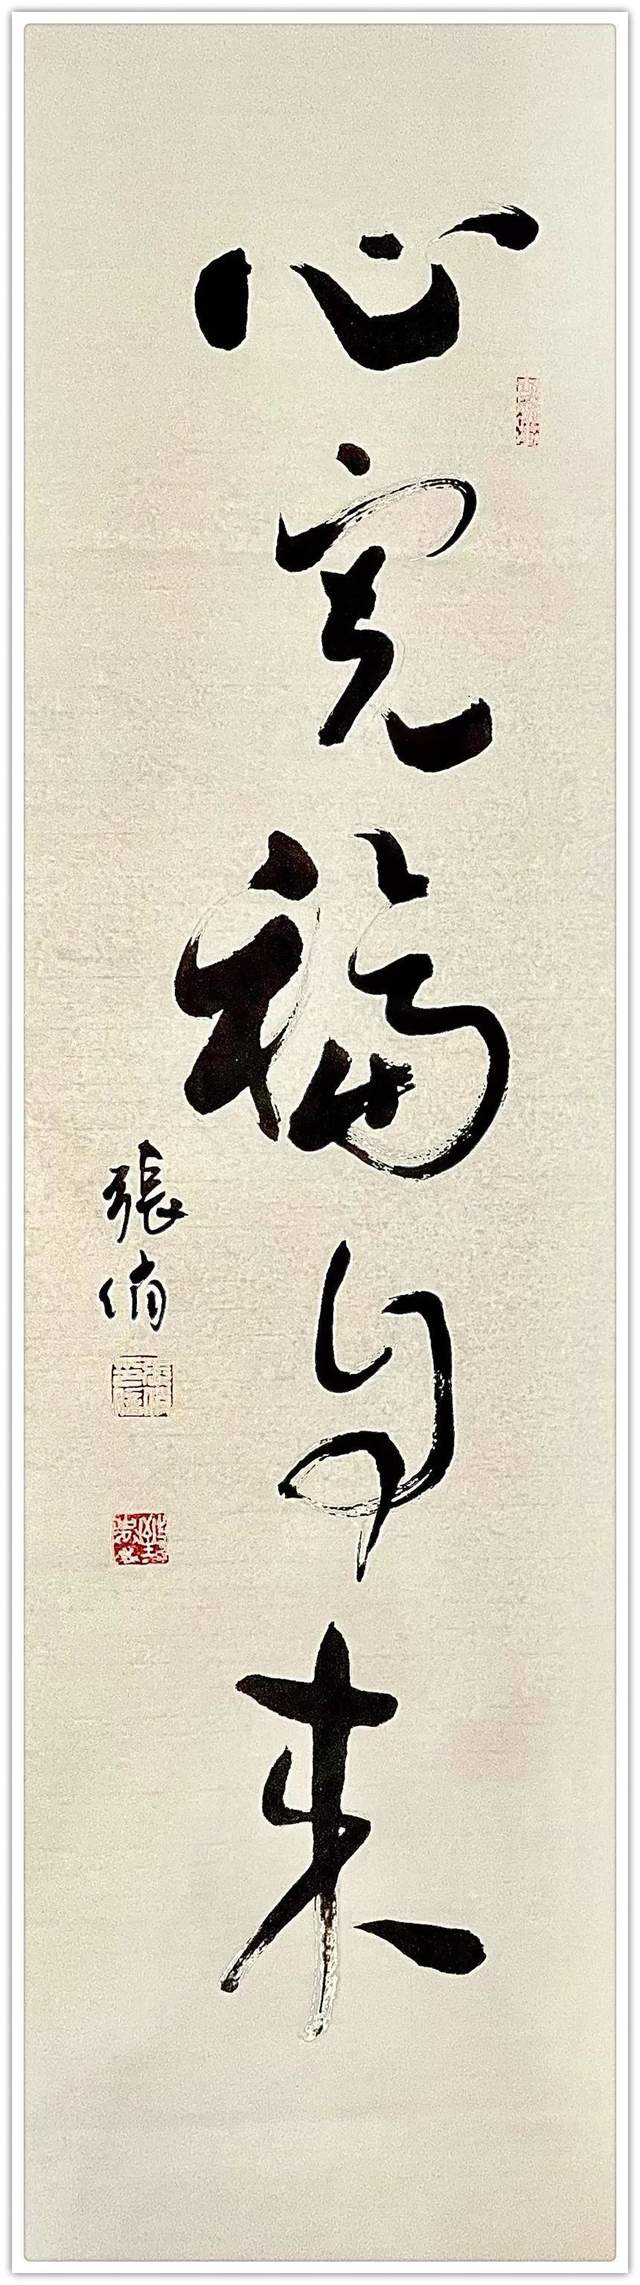 心宽福自来
張俏